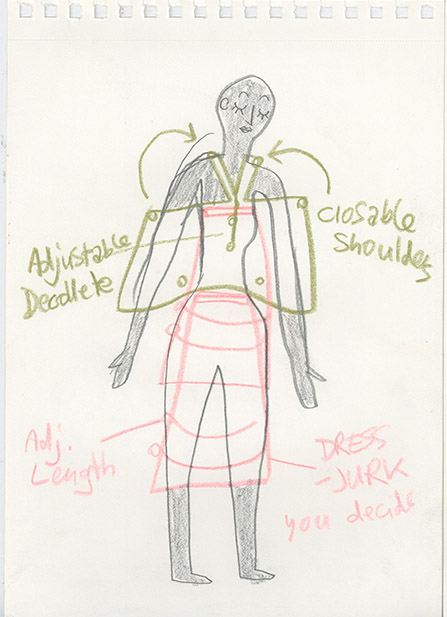 closable
shoulders
Adjustable
Decollete
Adj.
Length
DRESS
-JURK
you decide